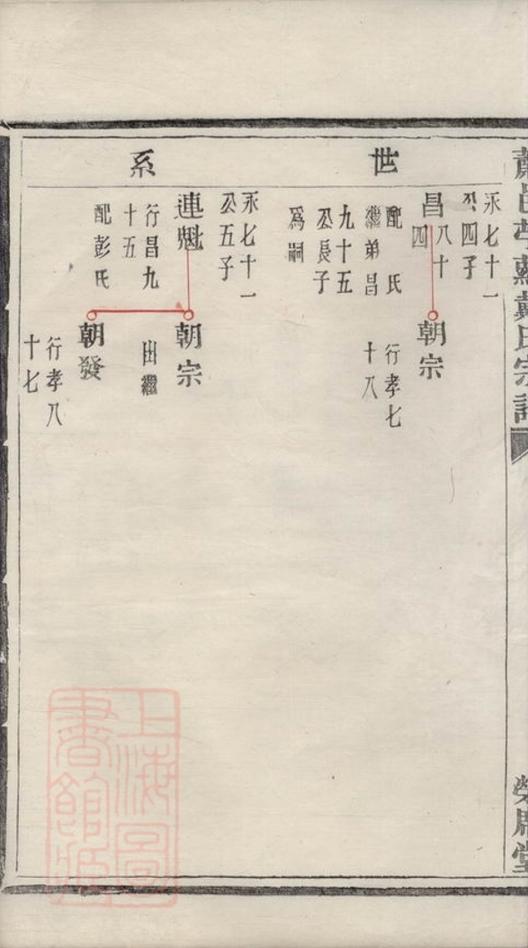 世系
永七十一
公四子
昌八十
四
配 氏
繼弟昌
九十五
公長子
爲嗣
朝宗
行孝七
十八
永七十一
公五子
連魁
行昌九
十五
配彭氏
朝宗
出繼
朝發
行孝八
十七
戴氏宗譜
榮居堂
上海圖
書館藏